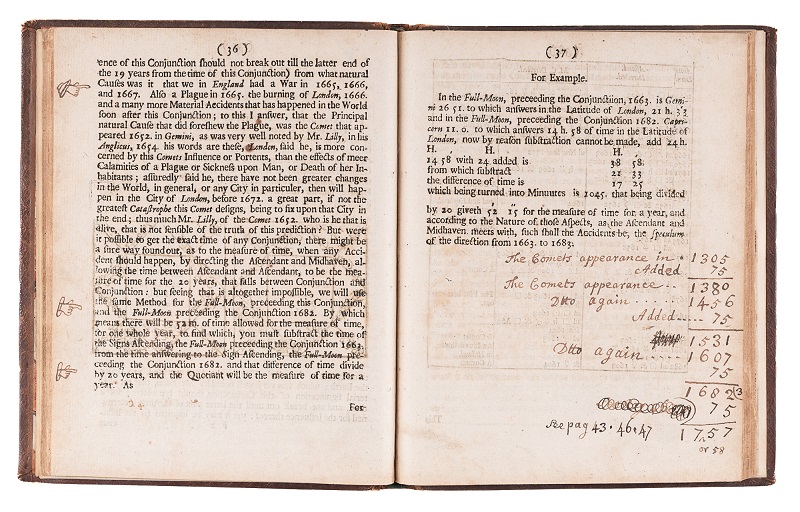 (36)
ence of this Conjunction should not break out till the latter end of
the 19 years from the time of this Conjunction) from what natural
Causes was it that we in England had a War in 1665, 1666,
and 1667. Also a Plague in 1665. the burning of London, 1666.
and a many more Material Accidents that has happened in the World
soon after this Conjunction; to this I answer, that the Principal
natural Cause that did foreshew the Plague, was the Comet that ap-
peared 1652. in Gemini, as was very well noted by Mr. Lilly, in his
Anglicus, 1654. his words are these, London, said he, is more con-
cerned by this Comets Influence or Portents, than the effects of meer
Calamities of a Plague or Sickness upon Man, or Death of her In-
habitants; assuredly said he, there have not been greater changes
in the World, in general, or any City in particuler, then will hap-
pen in the City of London, before 1672. a great part, if not the
greatest Catastrophe this Comet designs, being to fix upon that City in
the end; thus much Mr. Lilly, of the Comet 1652. who is he that is
alive, that is not sensible of the truth of this prediction? But were
it possible to get the exact time of any Conjunction, there might be
a sure way found out, as to the measure of time, when any Acci-
dent should happen, by directing the Ascendant and Midhaven, al-
lowing the time between Ascendant and Ascendant, to be the mea-
sure of time for the 20 years, that falls between Conjunction and
Conjunction: but seeing that is altogether impossible, we will use
the same Method for the Full-Moon, preceeding this Conjunction,
and the Full-Moon preceeding the Conjunction 1682. By which
means there will be 52 m. of time allowed for the measure of time,
for one whole year, to find which, you must substract the time of
the Signs Ascending, the Full-Moon preceeding the Conjunction 1663.
from the time answering to the Sign Ascending, the Full-Moon pre-
ceeding the Conjunction 1682. and that difference of time divide
by 20 years, and the Quotiant will be the measure of time for a
year. As
24
For
(37)
For Example.
In the Full-Moon, preceeding the Conjunction, 1663. is Gemi-
ni 26 51. to which answers in the Latitude of London, 21 h. 33
and in the Full-Moon, preceeding the Conjunction 1682. Capri-
corn 11. 0. to which answers 14 h. 58 of time in the Latitude of
London, now by reason substraction cannot be made, add 24 h.
H. H.
14 58 with 24 added is 38 58.
from which substract 21 33
the difference of time is 17 25
which being turned into Minuutes is 1045. that being divided
by 20 giveth 52 15 for the measure of time for a year, and
according to the Nature of those Aspects, as the Ascendant and
Midhaven meets with, such shall the Accidents be, the speculum
of the direction from 1663. to 1683;
The Comets appearance in . 1305
Added 75
The Comets appearance . . 1380
Dtto again . . . . . . 1456
Added . . . . 75
1531
Dtto again . . . . . 1607
75
1682
3
75
See pag 43 . 46 . 47 1757
or 58